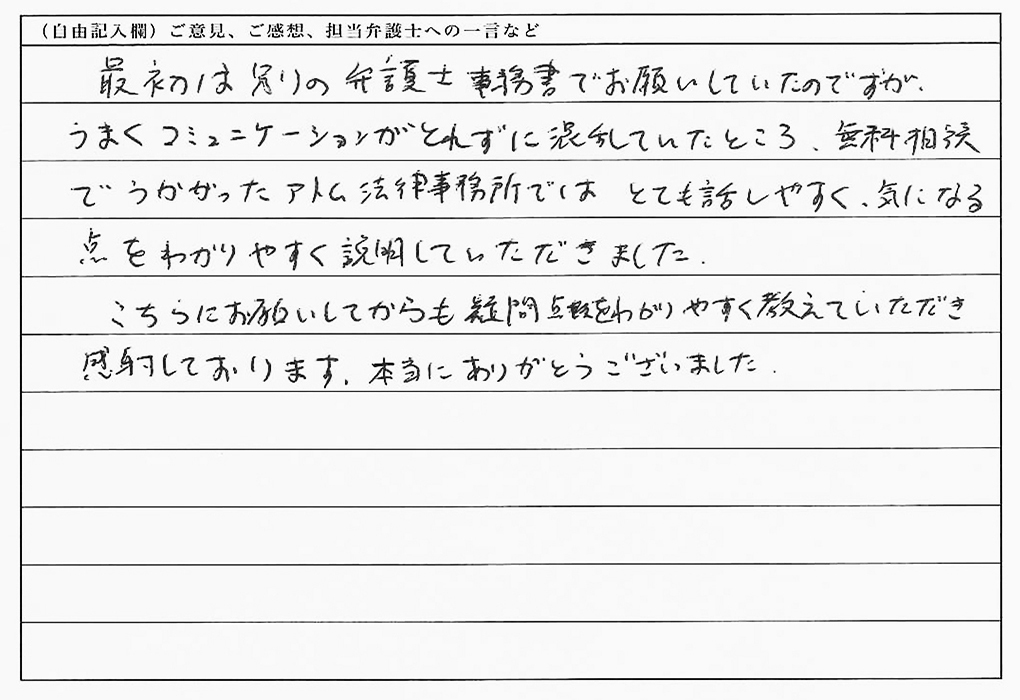 （自由記入欄）ご意見、ご感想、担当弁護士への一言など
最初は別の弁護士事務書でお願いしていたのですが、
うまくコミュニケーションがとれずに混乱していたところ、無料相談
でうかがったアトム法律事務所では とても話しやすく、気になる
点をわかりやすく説明していただきました。
こちらにお願いしてからも疑問点をわかりやすく教えていただき
感謝しております。本当にありがとうございました。